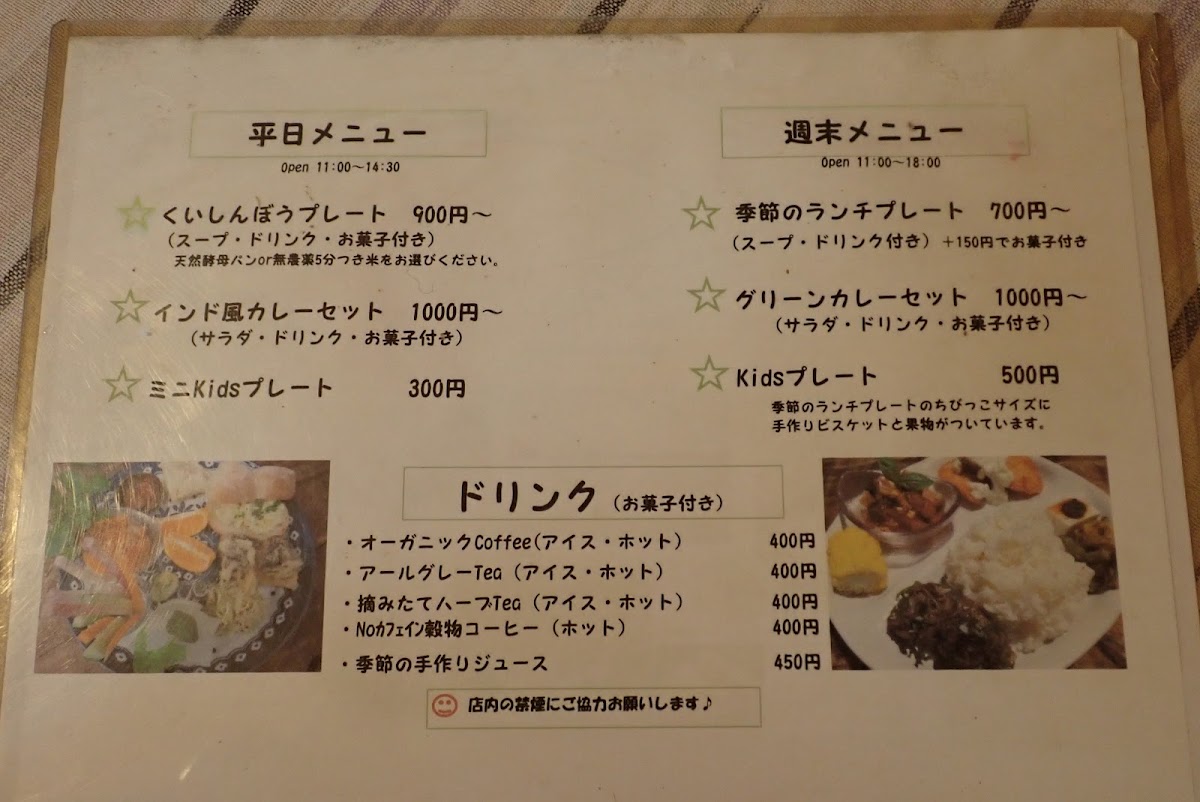 平日メニュー
Open 11:00～14:30
☆くいしんぼうプレート 900円～
(スープ・ドリンク・お菓子付き)
天然酵母パンor無農薬5分つき米をお選びください。
☆インド風カレーセット 1000円～
(サラダ・ドリンク・お菓子付き)
☆ミニKidsプレート 300円
週末メニュー
Open 11:00～18:00
☆季節のランチプレート 700円～
(スープ・ドリンク付き) +150円でお菓子付き
☆グリーンカレーセット 1000円～
(サラダ・ドリンク・お菓子付き)
☆Kidsプレート 500円
季節のランチプレートのちびっこサイズに
手作りビスケットと果物がついています。
ドリンク (お菓子付き)
・オーガニックCoffee(アイス・ホット) 400円
・アールグレーTea (アイス・ホット) 400円
・摘みたてハーブTea (アイス・ホット) 400円
・Noカフェイン穀物コーヒー (ホット) 400円
・季節の手作りジュース 450円
店内の禁煙にご協力お願いします♪